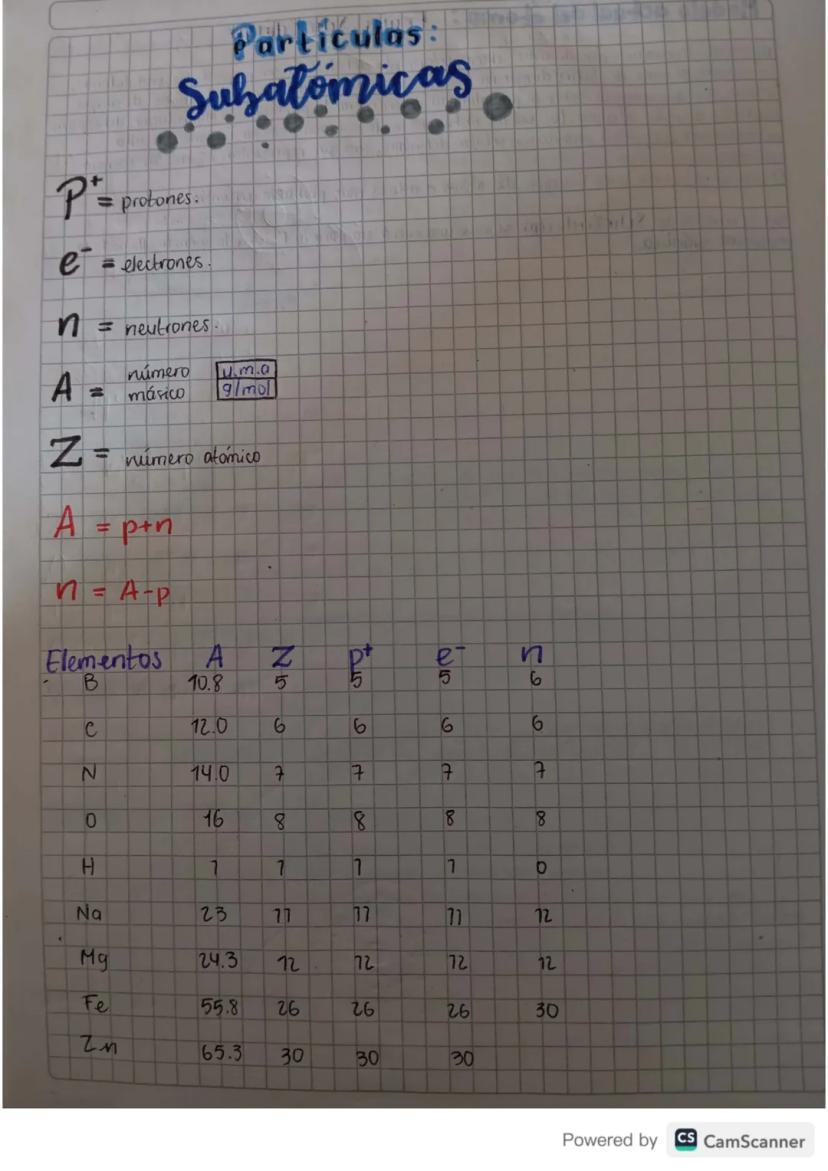 Partículas:
Subatómicas
P⁺ = protones.
e⁻ = electrones.
n = neutrones.
A = número másico u.m.a g/mol
Z = número atómico
A = p+n
n = A-p
Elementos A Z p⁺ e⁻ n
B 10.8 5 5 5 6
C 12.0 6 6 6 6
N 14.0 7 7 7 7
O 16 8 8 8 8
H 1 1 1 1 0
Na 23 11 11 11 12
Mg 24.3 12 12 12 12
Fe 55.8 26 26 26 30
Zn 65.3 30 30 30
Powered by CS CamScanner